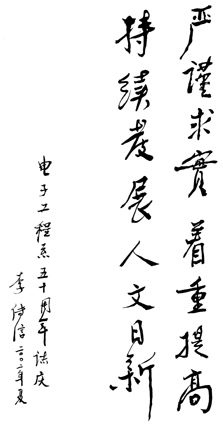 严谨求實着重提高
持续发展人文日新
电子工程系五十周年誌庆
李传信二〇〇二年夏